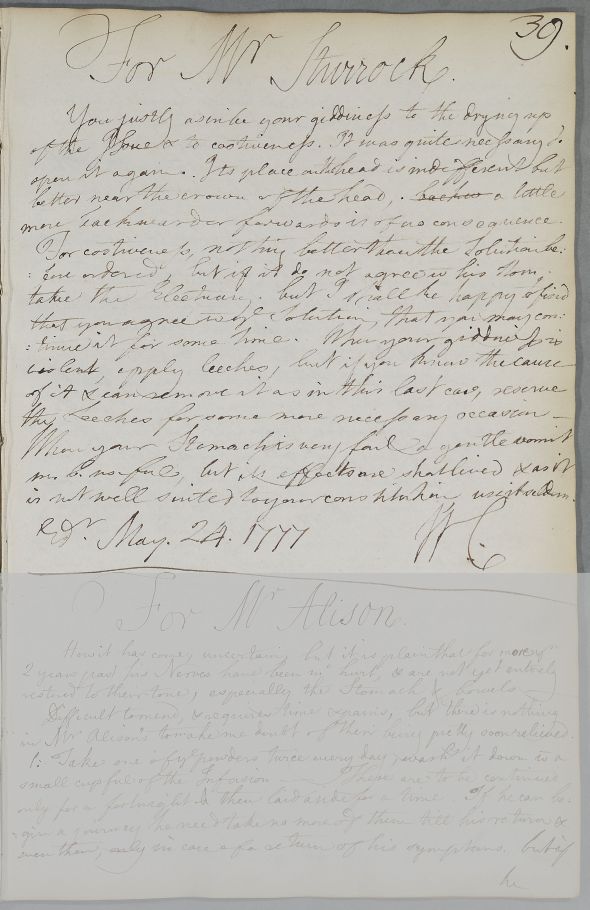 39.
For Mr Sturrock.
You justly ascribe your giddiness to the drying up
of the Issue & to costiveness. It was quite necessary to
open it again. Its place on the head is indifferent but
better near the crown of the head, a little
more backward or forwards is of no consequence.
For costiveness, nothing better than the Solution be:
:fore ordered, but if it do not agree with his Stom.
take the Electuary. but I shall be happy to find
that you agree with ye Solution, that you may con:
:tinue it for some time. When your giddiness is
violent, apply leeches, but if you know the cause
of it & can remove it as in this last case, reserve
the Leeches for some more necessary occasion
When your Stomach is very foul a gentle vomit
m. b. useful, but its effects are shortlived & as it
is not well suited to your constitution use it seldom.
Edr. May. 24. 1777 WC
For Mr Alison.
How it has come, uncertain, but it is plain that for more yn
2 years past his Nerves have been m. hurt, & are not yet entirely
restored to their tone, especially the Stomach & bowels
Difficult to mend, & requires time & pains, but there is nothing
in Mr Alison's to make me doubt of their being pretty soon relieved.
1: Take one of ye powders twice every day, wash it down wt a
small cupful of the Infusion These are to be continued
only for a fortnight & then laid aside for a time. If he can be:
:gin a journey he need take no more of them till his return &
even then, only in case of a return of his symptoms. but if
he